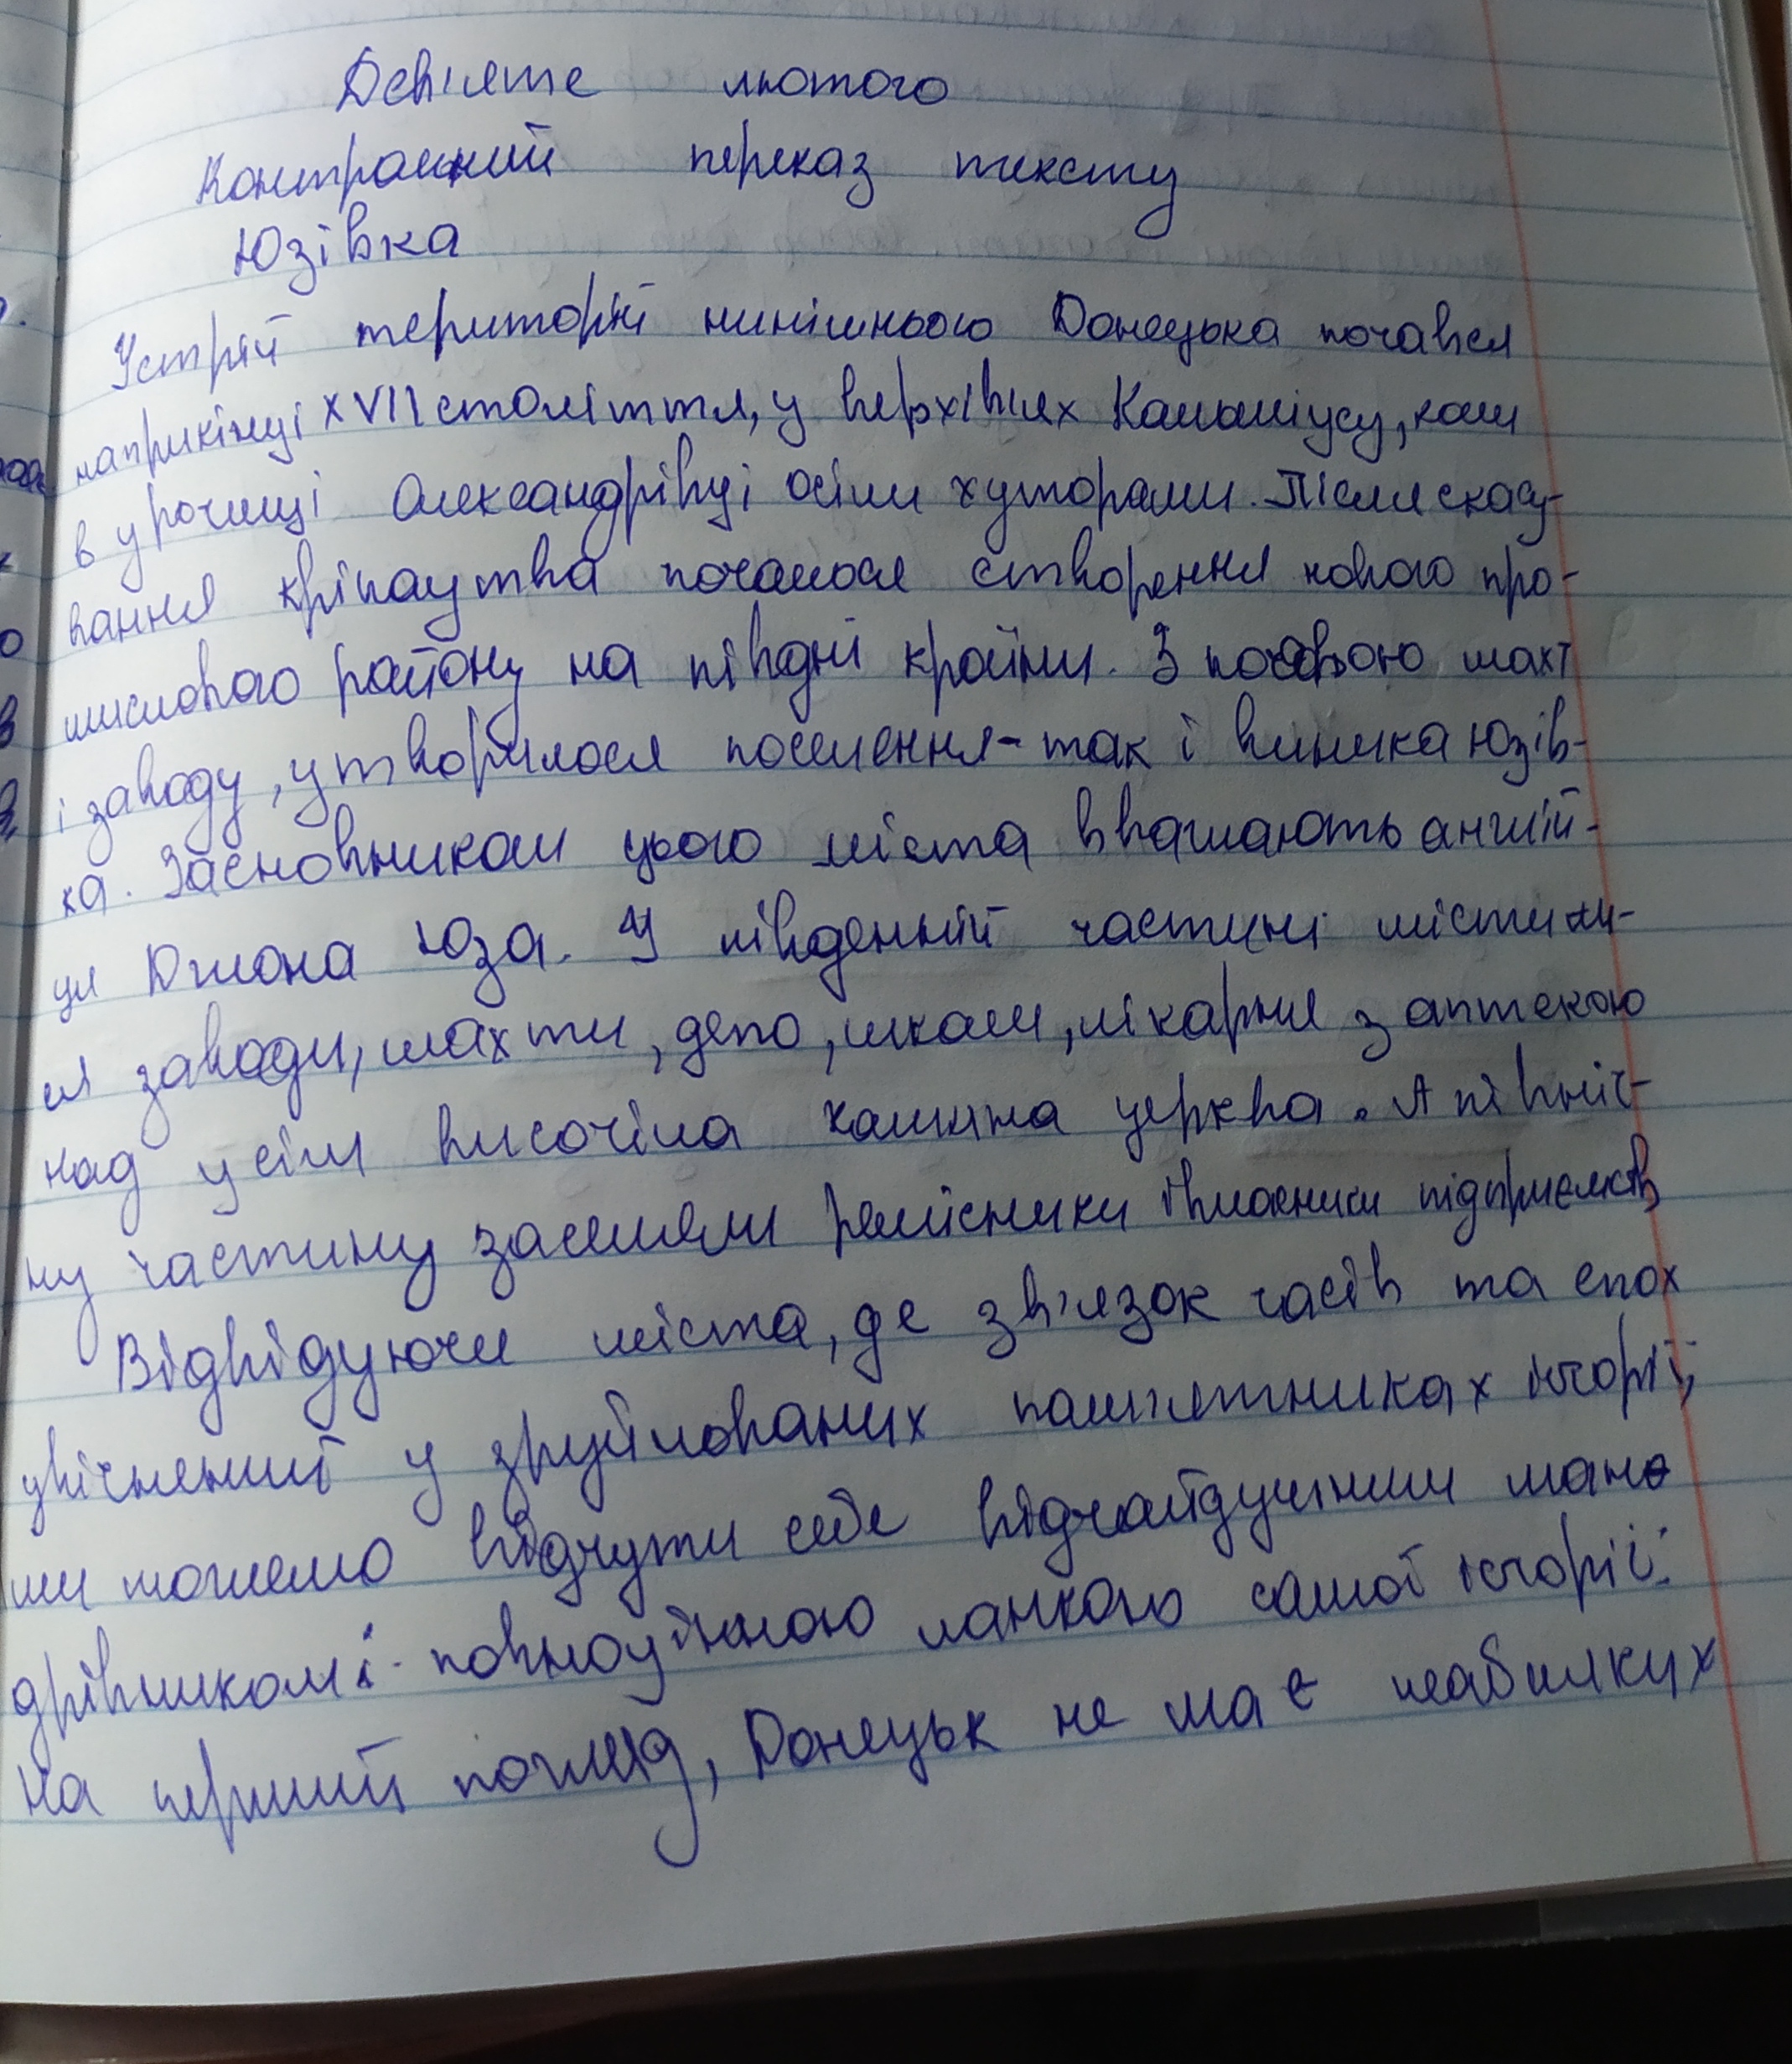 Дев'яте лютого
Контрольний переказ тексту
Юзівка
Устрій території нинішнього Донецька почався
наприкінці XVII століття, у верхів'ях Кальміусу, коли
в урочищі Олександрівці осіли хуторами. Після скасу-
вання кріпацтва почалося створення нового про-
мислового району на півдні країни. З появою шахт
і заводу, утворилося поселення - так і виникла Юзів-
ка. Засновником цього міста вважають англій-
ця Джона Юза. У південній частині містили-
ся заводи, шахти, депо, школи, лікарня з аптекою
над усім височіла кам'яна церква. А північ-
ну частину заселяли ремісники й власники підприємств
Відвідуючи міста, де зв'язок часів та епох
увічнений у зруйнованих пам'ятниках історії,
ми можемо відчути себе відчайдушним ман-
дрівником і повноцінною ланкою самої історії.
На перший погляд, Донецьк не має шабликих